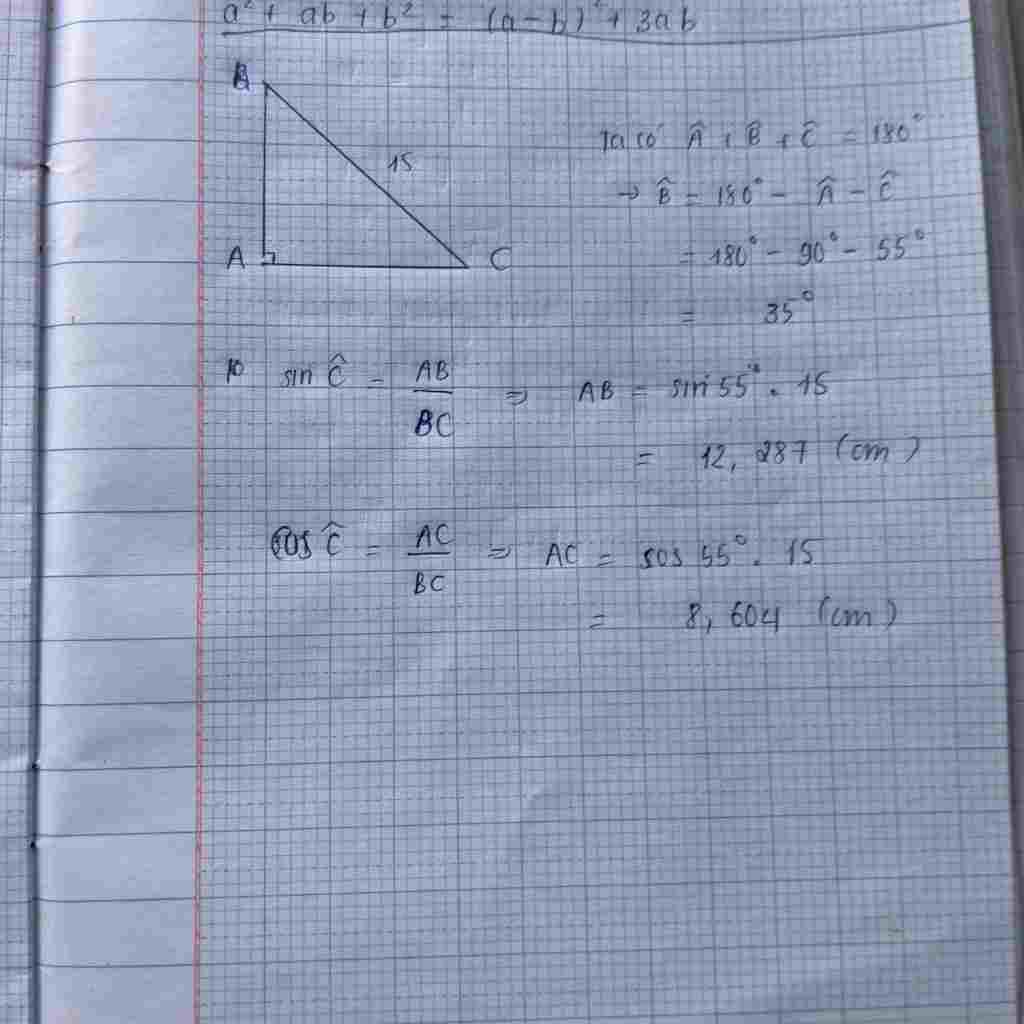 a² + ab + b² = (a-b)² + 3ab
B
15
A
C
Ta có Â + B̂ + Ĉ = 180°
→ B̂ = 180° - Â - Ĉ
= 180° - 90° - 55°
= 35°
sin Ĉ = AB/BC ⇒ AB = sin 55° . 15
= 12,287 (cm)
cos Ĉ = AC/BC ⇒ AC = cos 55° . 15
= 8,604 (cm)